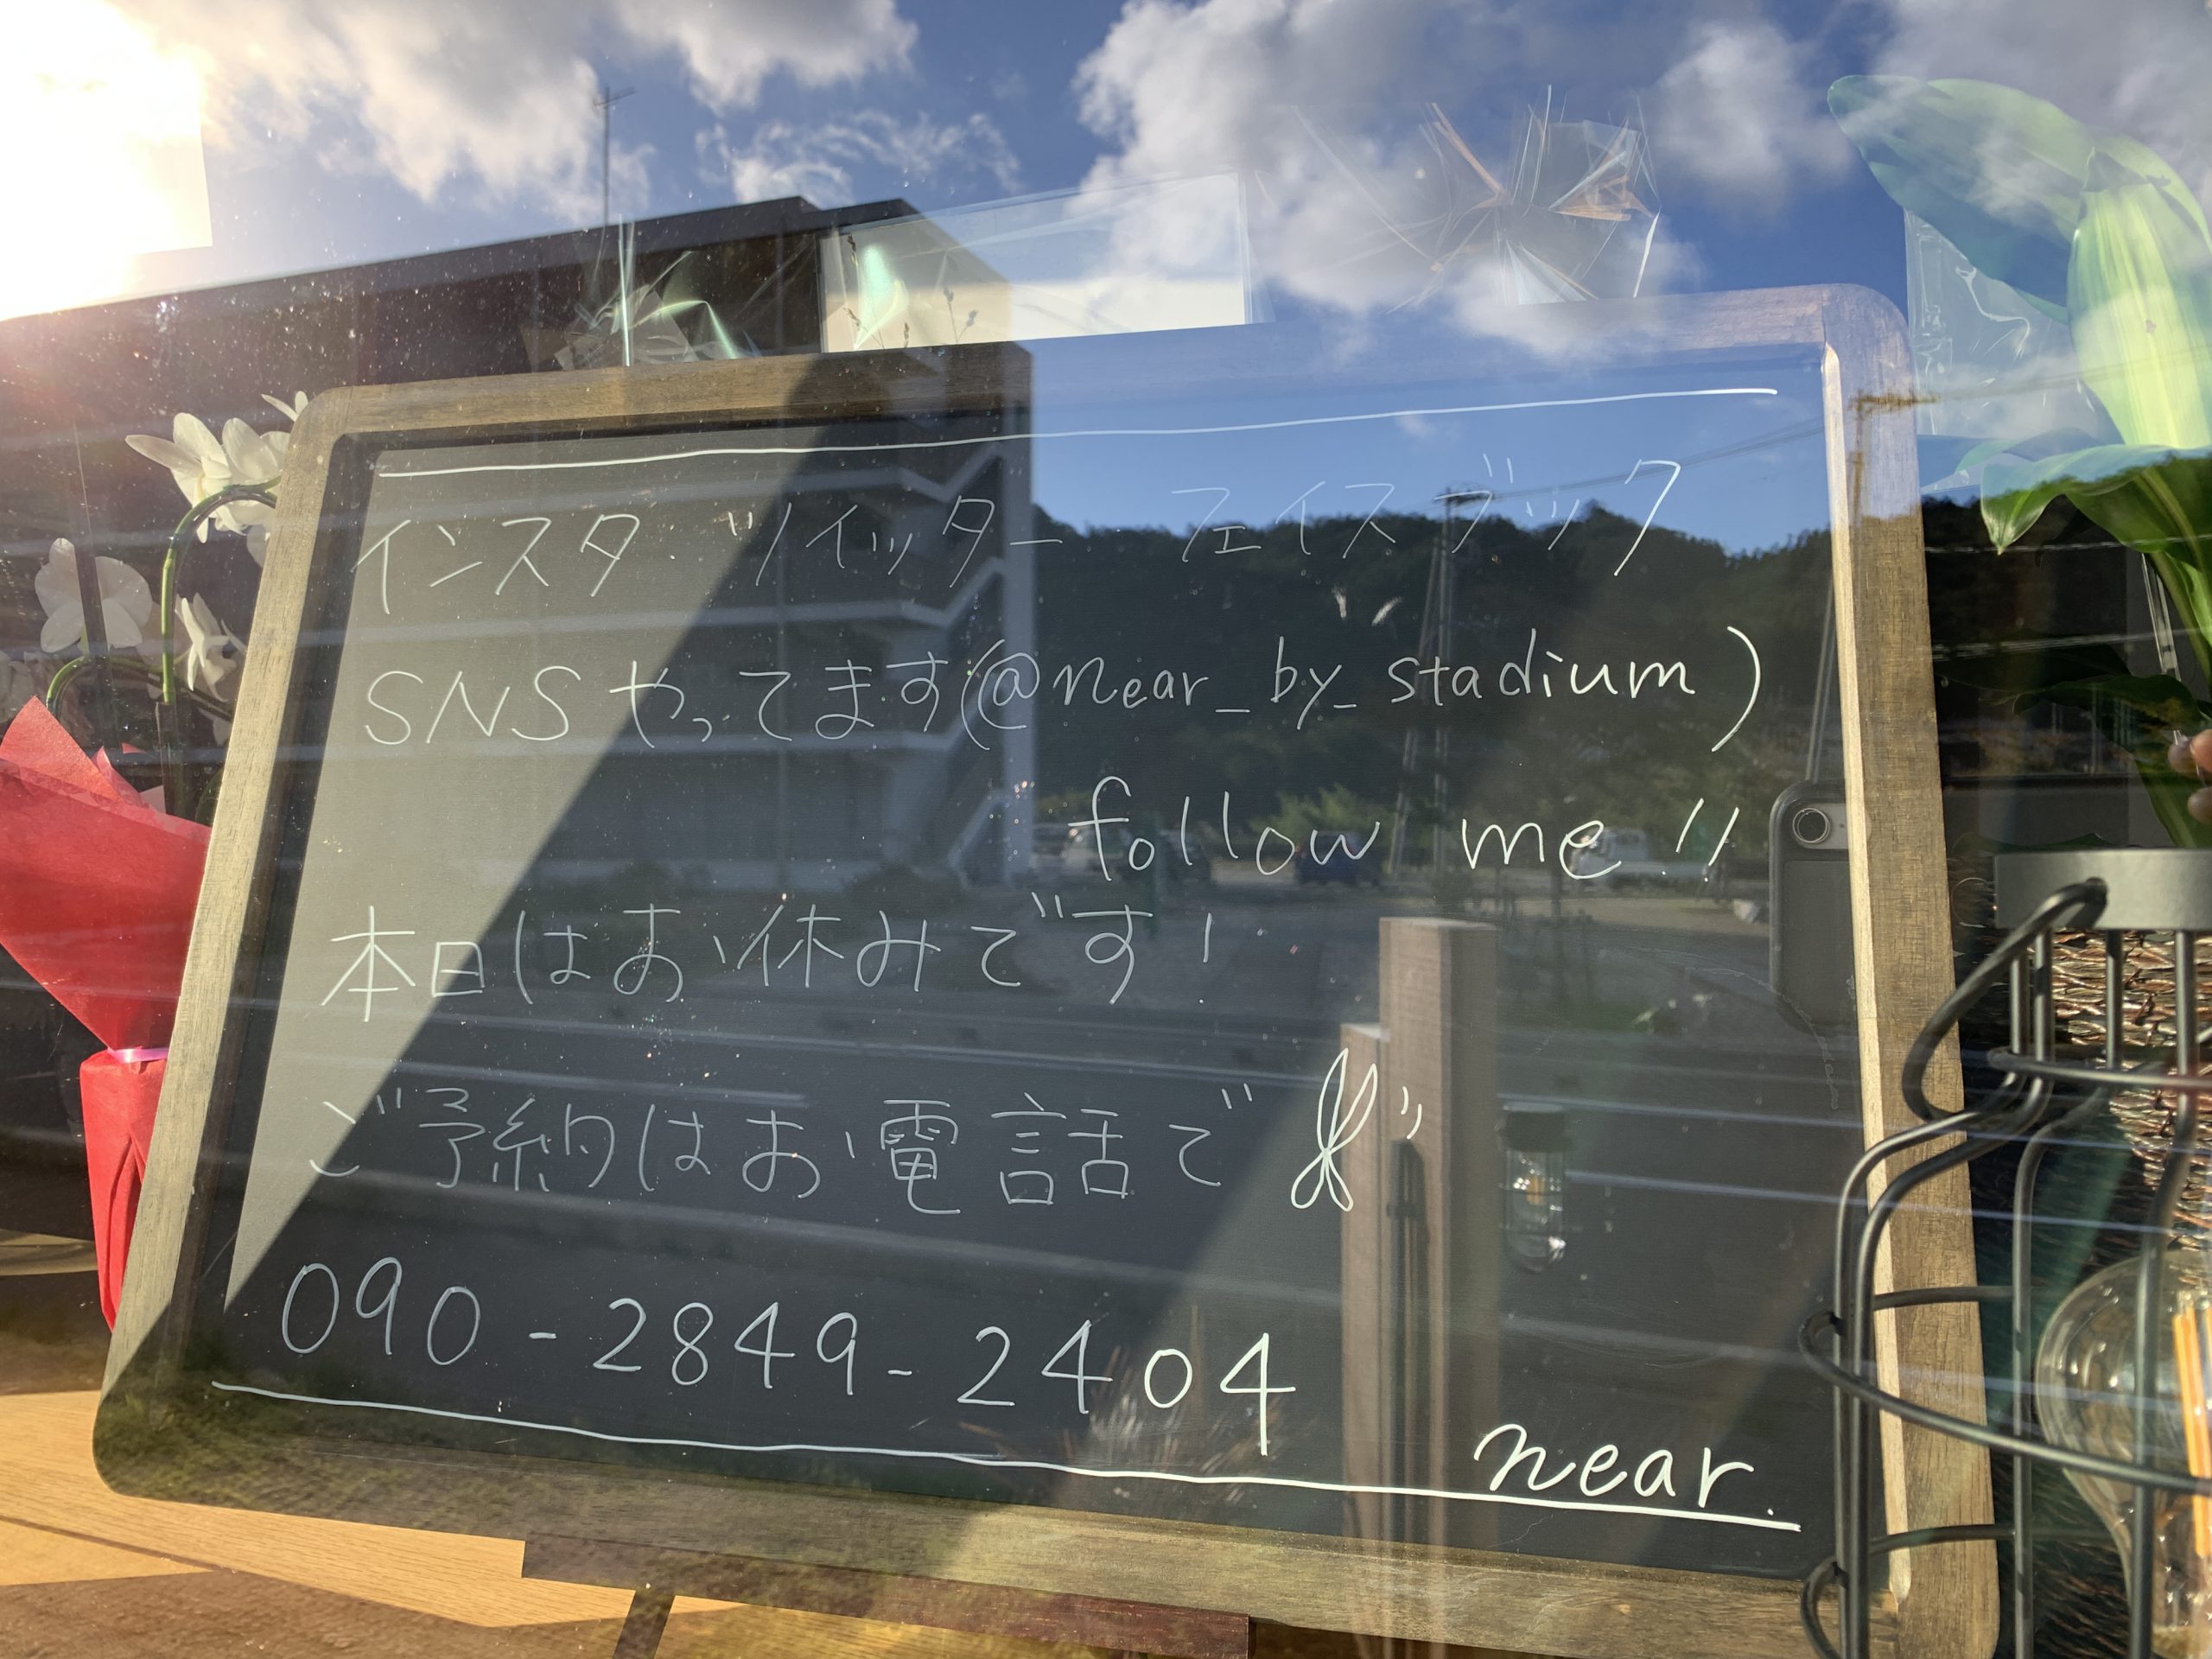 インスタ・ツイッター・フェイスブック
SNSやってます(@near_by_stadium)
follow me!!
本日はお休みです!
ご予約はお電話で
090-2849-2404
near.